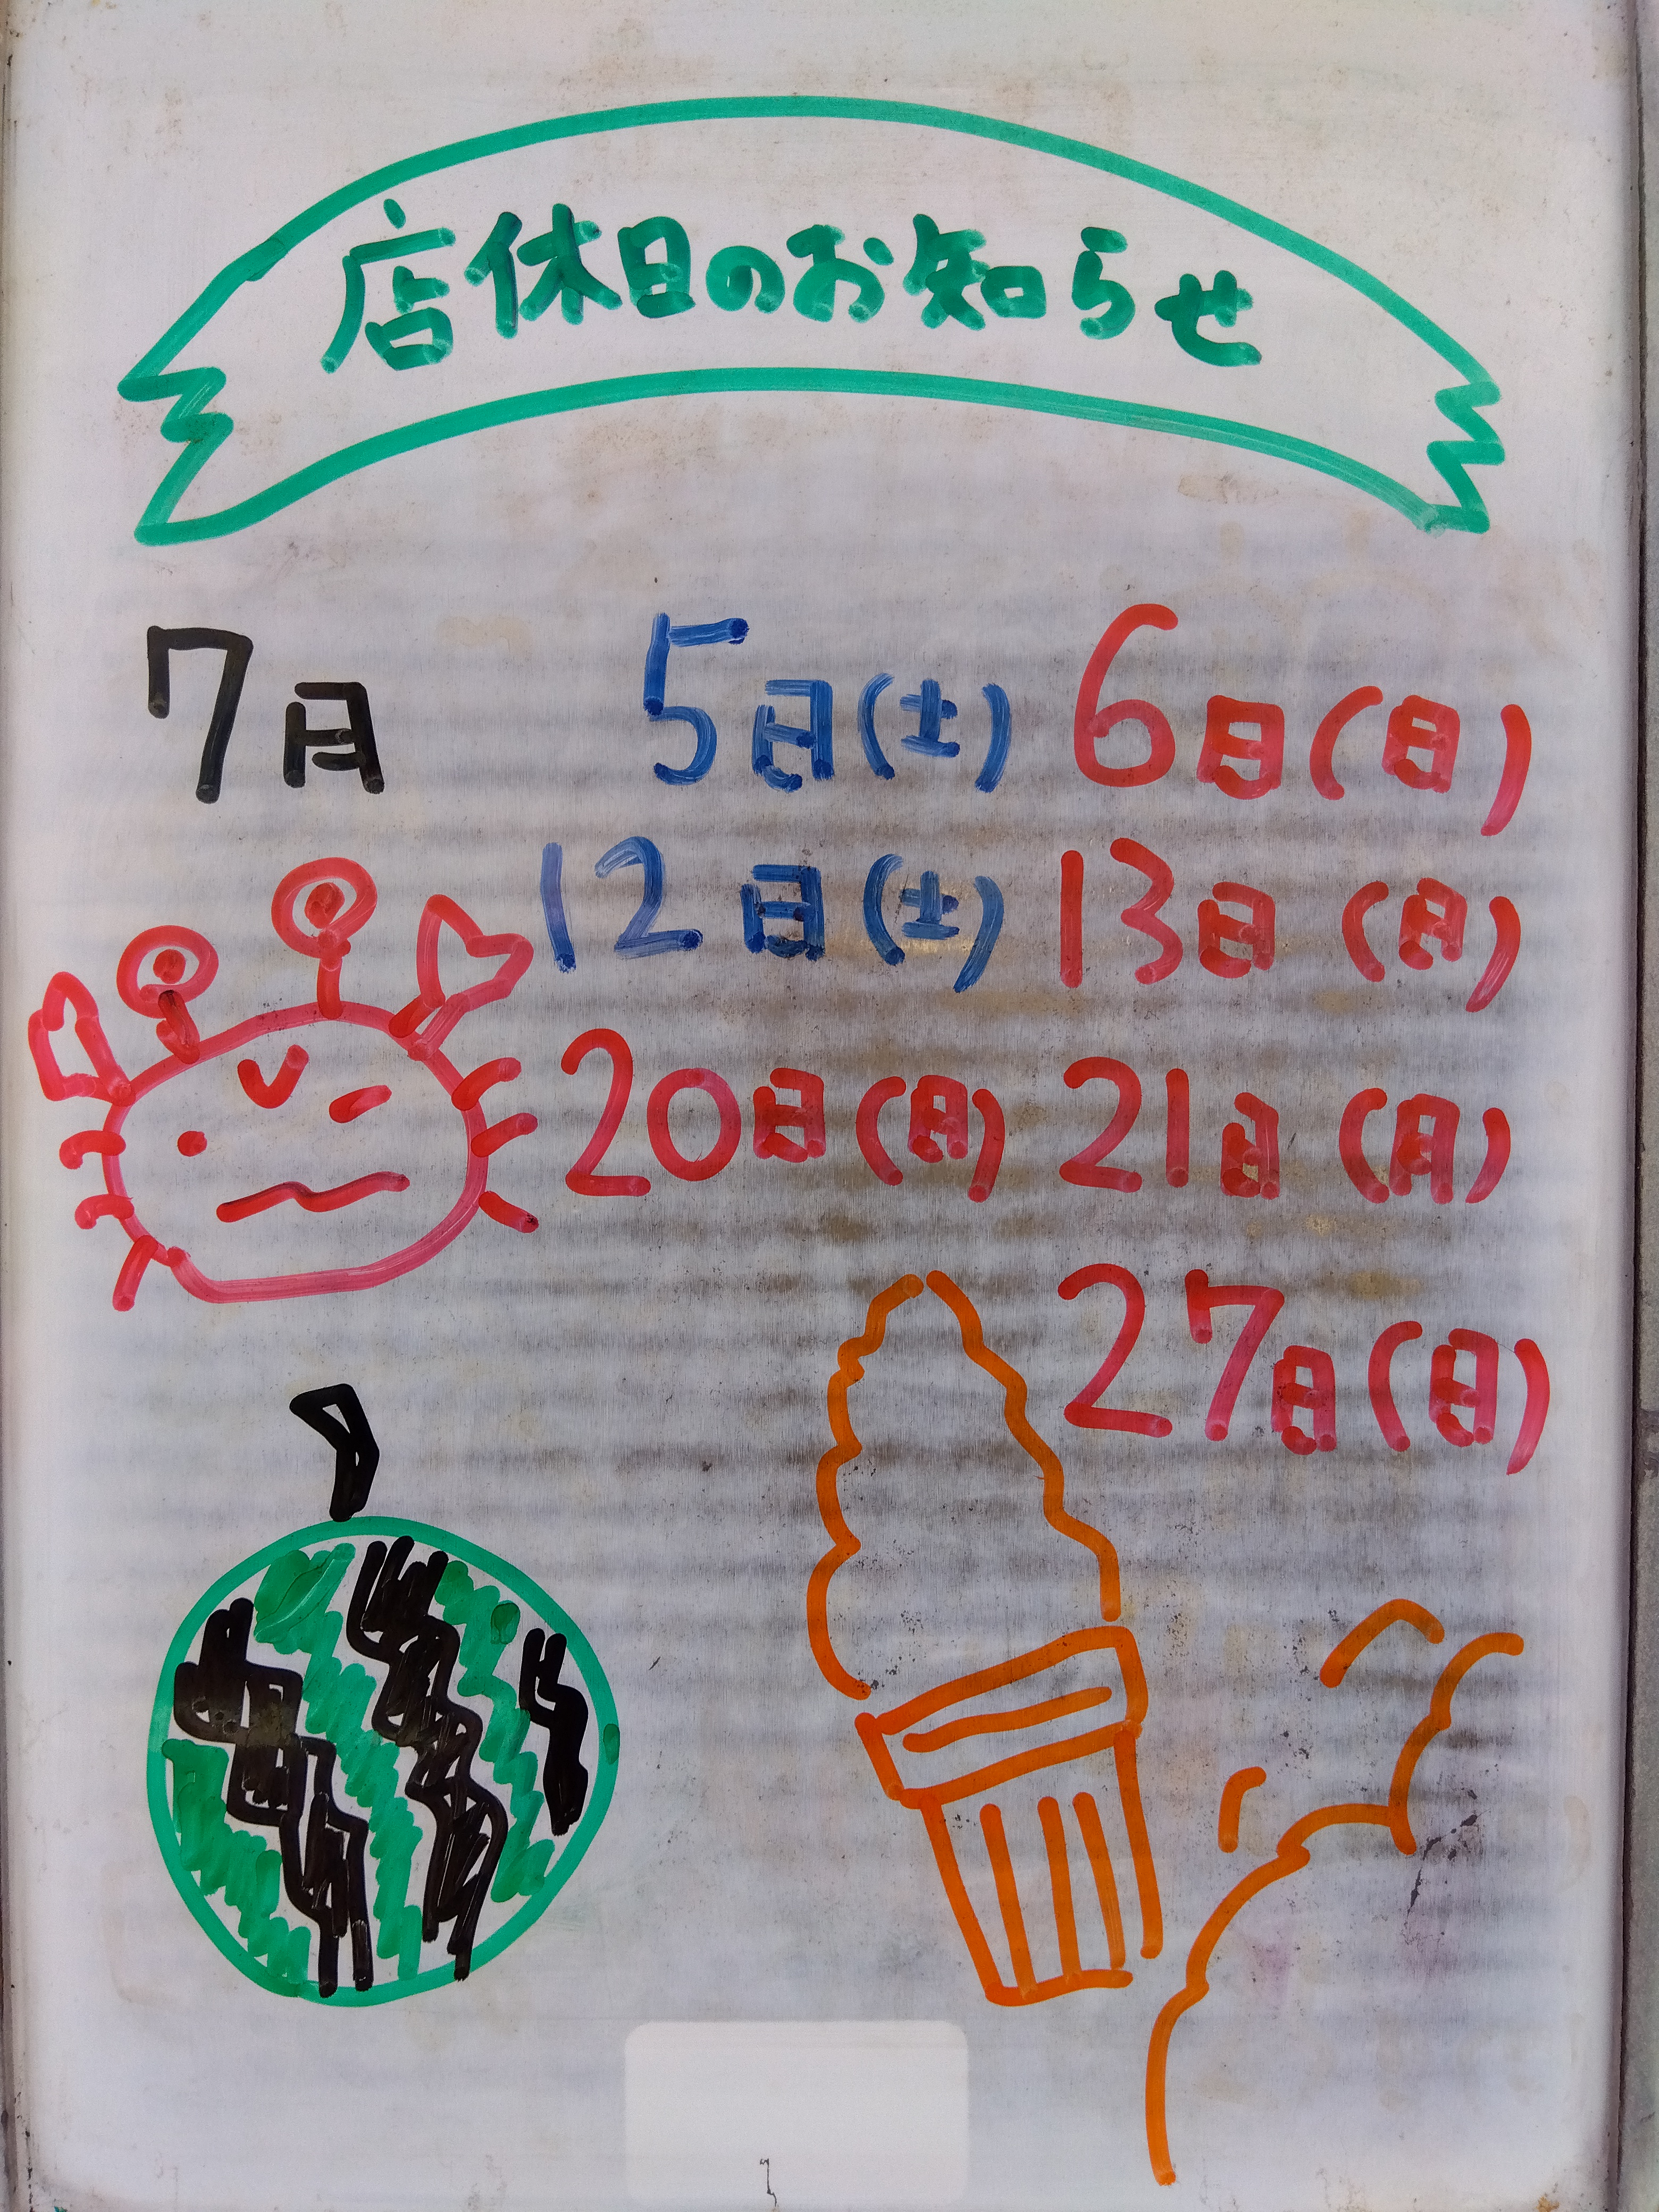 店休日のお知らせ
7月 5日(土) 6日(日)
12日(土) 13日(日)
20日(日) 21日(月)
27日(日)